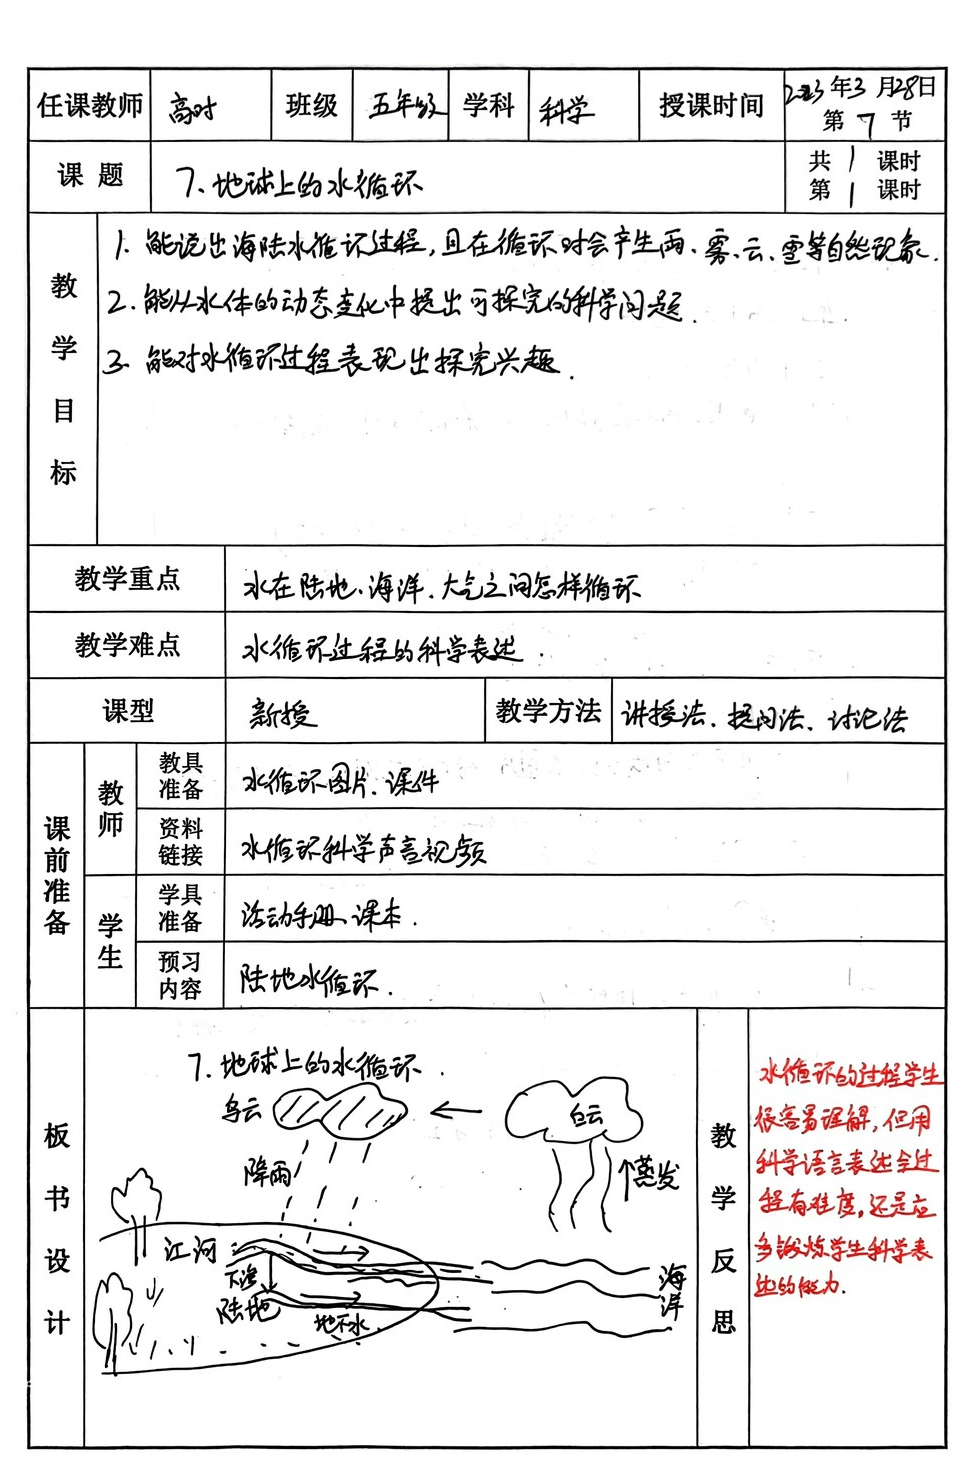 任课教师 高时 班级 五年级 学科 科学 授课时间 2023年3月28日
第 7 节
课题 7、地球上的水循环 共 1 课时
第 1 课时
教学目标
1. 能说出海陆水循环过程,且在循环时会产生雨、雾、云、雪等自然现象.
2. 能从水体的动态变化中提出可探究的科学问题.
3. 能对水循环过程表现出探究兴趣.
教学重点 水在陆地、海洋、大气之间怎样循环
教学难点 水循环过程的科学表述.
课型 新授 教学方法 讲授法、提问法、讨论法
课前准备
教师
教具准备 水循环图片、课件
资料链接 水循环科学声音视频
学生
学具准备 活动手册、课本.
预习内容 陆地水循环.
板书设计
7、地球上的水循环.
乌云 白云
降雨 蒸发
江河
下渗
陆地 地下水
海洋
教学反思
水循环的过程学生
很容易理解,但用
科学语言表达全过
程有难度,还是应
多锻炼学生科学表
达的能力.